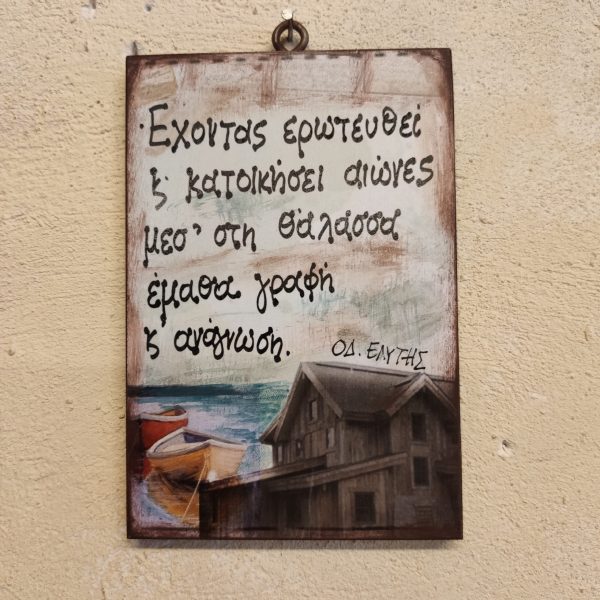 Έχοντας ερωτευθεί
ϗ κατοικήσει αιώνες
μεσ' στη θάλασσα
έμαθα γραφή
ϗ ανάγνωση.
ΟΔ. ΕΛΥΤΗΣ